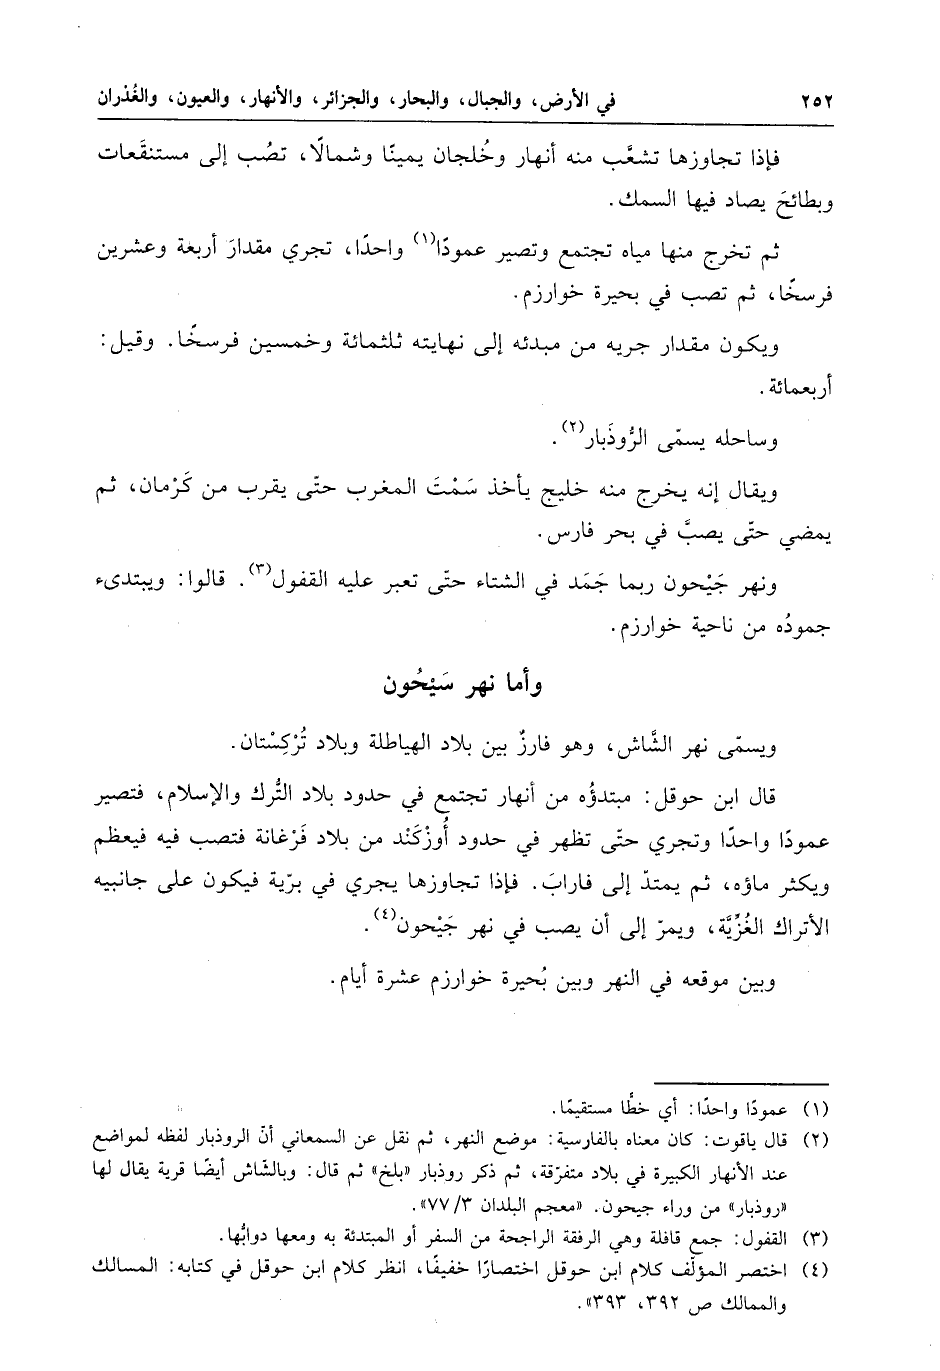 ٢٥٢ في الأرض، والجبال، والبحار، والجزائر، والأنهار، والعيون، والغُدْران
فإذا تجاوزها تشعَّب منه أنهار وخُلجان يمينًا وشمالًا، تصُب إلى مستنقَعات
وبطائحَ يصاد فيها السمك.
ثم تخرج منها مياه تجتمع وتصير عمودًا(١) واحدًا، تجري مقدارَ أربعة وعشرين
فرسخًا، ثم تصب في بحيرة خوارزم.
ويكون مقدار جريه من مبدئه إلى نهايته ثلثمائة وخمسين فرسخًا. وقيل:
أربعمائة.
وساحله يسمّى الرُّوذَبار(٢).
ويقال إنه يخرج منه خليج يأخذ سَمْتَ المغرب حتّى يقرب من كَرْمان، ثم
يمضي حتّى يصبَّ في بحر فارس.
ونهر جَيْحون ربما جَمَد في الشتاء حتّى تعبر عليه القفول(٣). قالوا: ويبتدىء
جمودُه من ناحية خوارزم.
وأما نهر سَيْحُون
ويسمّى نهر الشَّاش، وهو فارزٌ بين بلاد الهياطلة وبلاد تُرْكِسْتان.
قال ابن حوقل: مبتدؤُه من أنهار تجتمع في حدود بلاد التُّرك والإسلام، فتصير
عمودًا واحدًا وتجري حتّى تظهر في حدود أُوزْكَنْد من بلاد فَرْغانة فتصب فيه فيعظم
ويكثر ماؤه، ثم يمتدّ إلى فارابَ. فإذا تجاوزها يجري في برّية فيكون على جانبيه
الأتراك الغُزِّيَّة، ويمرّ إلى أن يصب في نهر جَيْحون(٤).
وبين موقعه في النهر وبين بُحيرة خوارزم عشرة أيام.
(١) عمودًا واحدًا: أي خطًّا مستقيمًا.
(٢) قال ياقوت: كان معناه بالفارسية: موضع النهر، ثم نقل عن السمعاني أنّ الروذبار لفظه لمواضع
عند الأنهار الكبيرة في بلاد متفرّقة، ثم ذكر روذبار «بلخ» ثم قال: وبالشّاش أيضًا قرية يقال لها
«روذبار» من وراء جيحون. «معجم البلدان ٣/ ٧٧».
(٣) القفول: جمع قافلة وهي الرفقة الراجحة من السفر أو المبتدئة به ومعها دوابُّها.
(٤) اختصر المؤلّف كلام ابن حوقل اختصارًا خفيفًا، انظر كلام ابن حوقل في كتابه: المسالك
والممالك ص ٣٩٢، ٣٩٣».